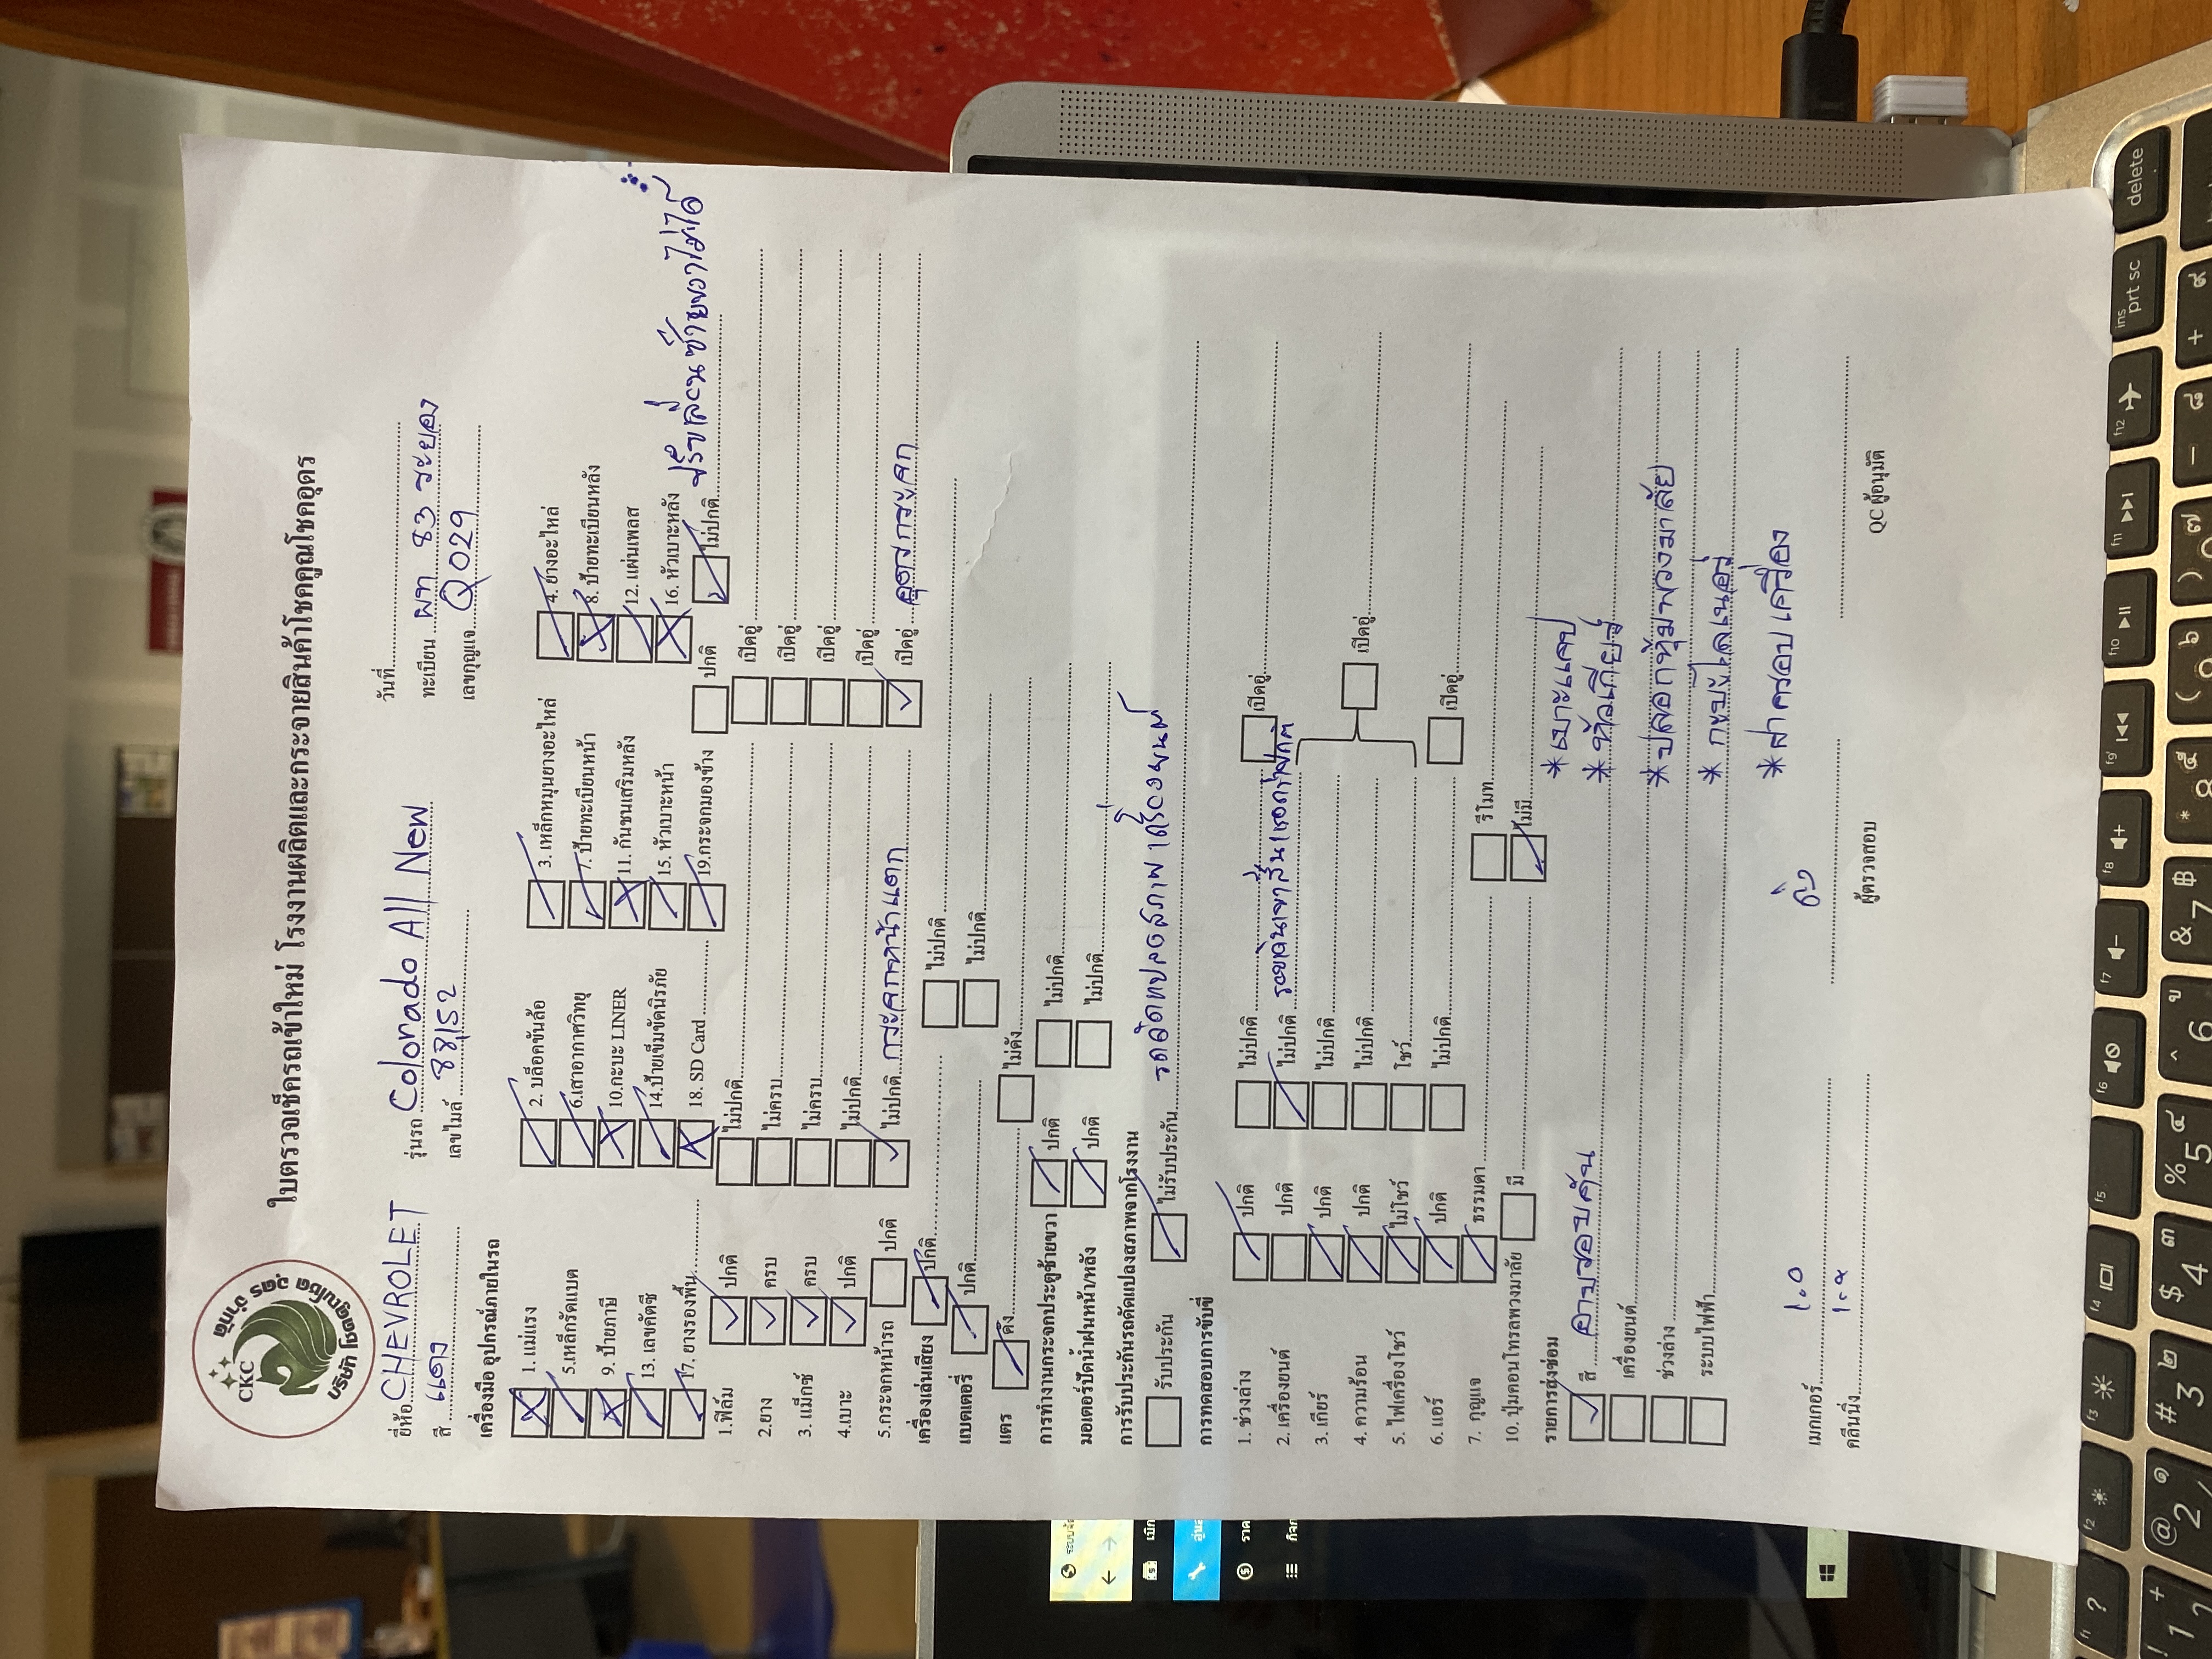 บริษัท โชคคูณโชค อุดร จำกัด
CKC
ใบตรวจเช็ครถเข้าใหม่ โรงงานผลิตและกระจายสินค้าโชคคูณโชคอุดร
วันที่
ยี่ห้อ CHEVROLET รุ่นรถ Colorado All New ทะเบียน ผท 83 ระยอง
สี แดง เลขไมล์ 88,152 เลขกุญแจ Q029
เครื่องมือ อุปกรณ์ภายในรถ
1. แม่แรง 2. บล็อคขันล้อ 3. เหล็กหมุนยางอะไหล่ 4. ยางอะไหล่
5.เหล็กรัดแบต 6.เสาอากาศวิทยุ 7. ป้ายทะเบียนหน้า 8. ป้ายทะเบียนหลัง
9. ป้ายภาษี 10.กะบะ LINER 11. กันชนเสริมหลัง 12. แผ่นเพลส
13. เลขคัตซี 14.ป้ายเข็มขัดนิรภัย 15. หัวเบาะหน้า 16. หัวเบาะหลัง
17. ยางรองพื้น 18. SD Card 19.กระจกมองข้าง ปกติ ไม่ปกติ ปรับเลื่อนซ้ายขวาไม่ได้
1.ฟิล์ม ปกติ ไม่ปกติ เปิดอู่
2.ยาง ครบ ไม่ครบ เปิดอู่
3. แม็กซ์ ครบ ไม่ครบ เปิดอู่
4.เบาะ ปกติ ไม่ปกติ เปิดอู่
5.กระจกหน้ารถ ปกติ ไม่ปกติ กระจกหน้าแตก เปิดอู่ อุดสกระจก
เครื่องเล่นเสียง ปกติ ไม่ปกติ
แบตเตอรี่ ปกติ ไม่ปกติ
แตร ดัง ไม่ดัง
การทำงานกระจกประตูซ้ายขวา ปกติ ไม่ปกติ
มอเตอร์ปัดน้ำฝนหน้า/หลัง ปกติ ไม่ปกติ
การรับประกันรถดัดแปลงสภาพจากโรงงาน
รับประกัน ไม่รับประกัน รถดัดแปลงสภาพเครื่องยนต์
การทดสอบการขับขี่
1. ช่วงล่าง ปกติ ไม่ปกติ เปิดอู่
2. เครื่องยนต์ ปกติ ไม่ปกติ
3. เกียร์ ปกติ ไม่ปกติ
4. ความร้อน ปกติ ไม่ปกติ เปิดอู่
5. ไฟเครื่องโชว์ ไม่โชว์ โชว์
6. แอร์ ปกติ ไม่ปกติ เปิดอู่
7. กุญแจ ธรรมดา รีโมท
10. ปุ่มคอนโทรลพวงมาลัย มี ไม่มี
รายการส่งซ่อม
*เบาะแคป
สี อาบรอบคัน *หัวเกียร์
เครื่องยนต์
ช่วงล่าง *ปลอกหุ้มพวงมาลัย
ระบบไฟฟ้า *กะบะไลเนอร์
*ฝาครอบเครื่อง
เมกเกอร์
คลีนนิ่ง ผู้ตรวจสอบ QC ผู้อนุมัติ
delete
ins
prt sc
f12
f11
f10
f9
f8
f7
f6
f5
f4
f3
f2
f1